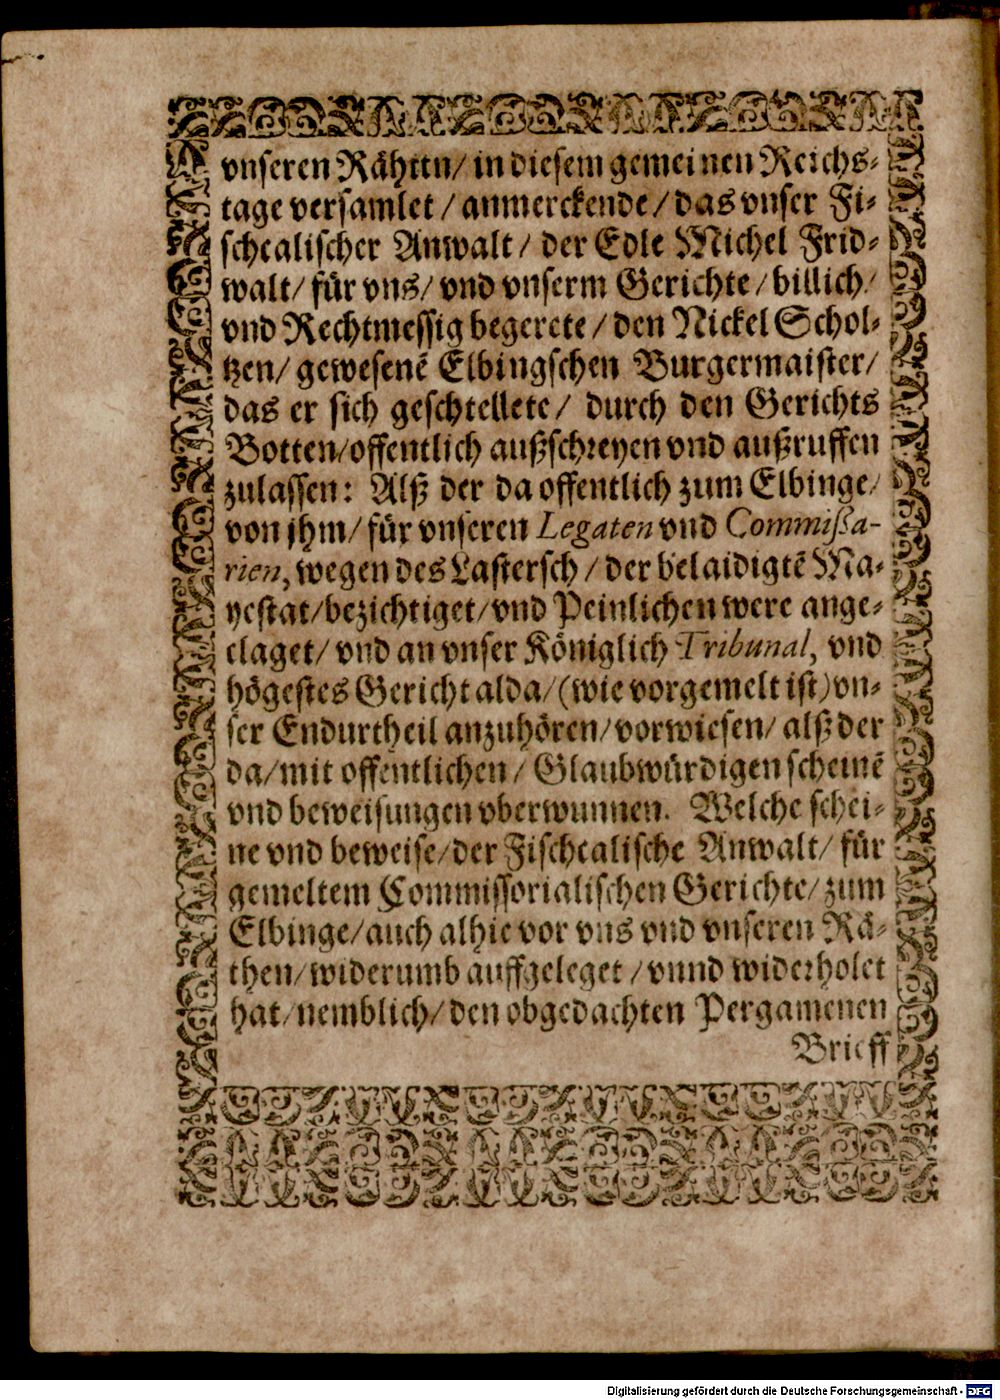 vnseren Rähten/ in diesem gemeinen Reichs-
tage versamlet / anmerckende / das vnser Fi-
schcalischer Anwalt / der Edle Michel Frid-
walt / für vns / vnd vnserm Gerichte / billich /
vnd Rechtmessig begerete / den Nickel Schol-
tzen / gewesenẽ Elbingschen Burgermaister /
das er sich geschtellete / durch den Gerichts
Botten / offentlich außschreyen vnd außruffen
zulassen: Alß der da offentlich zum Elbinge /
von jhm / für vnseren Legaten vnd Commißa-
rien, wegen des Lastersch / der belaidigtẽ Ma-
yestat / bezichtiget / vnd Peinlichen were ange-
claget / vnd an vnser Königlich Tribunal, vnd
högestes Gericht alda / (wie vorgemelt ist) vn-
ser Endurtheil anzuhören / vorwiesen / alß der
da / mit offentlichen / Glaubwürdigen scheinẽ
vnd beweisungen vberwunnen. Welche schei-
ne vnd beweise / der Fischcalische Anwalt / für
gemeltem Commissorialischen Gerichte / zum
Elbinge / auch alhie vor vns vnd vnseren Rä-
then / widerumb auffgeleget / vnnd widerholet
hat / nemblich / den obgedachten Pergamenen
Brieff
Digitalisierung gefördert durch die Deutsche Forschungsgemeinschaft - DFG